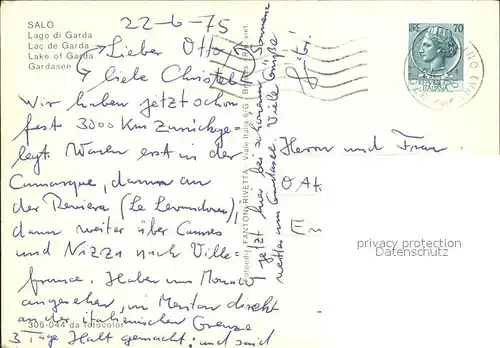 SALO
Lago di Garda
Lac de Garda
Lake of Garda
Gardasee
22-6-75
Lieber Otto,
liebe Christel!
Wir haben jetzt schon
fast 3000 Km zurückge-
legt. Waren erst in der
Camarque, dann an
der Reviera (Le Lavandou),
dann weiter über Cannes
und Nizza nach Ville-
franca. Haben uns Monaco
angesehen, in Menton direkt
an der italienischen Grenze
3 Tage Halt gemacht und sind
jetzt hier bei schönem Sommer
wetter am Gardasee. Viele Grüße
LIRE 70
Herrn und Frau
privacy protection
Datenschutz
Fotoediz. FANTONI RIVETTA - Viale Italia
305-044 da fotocolor